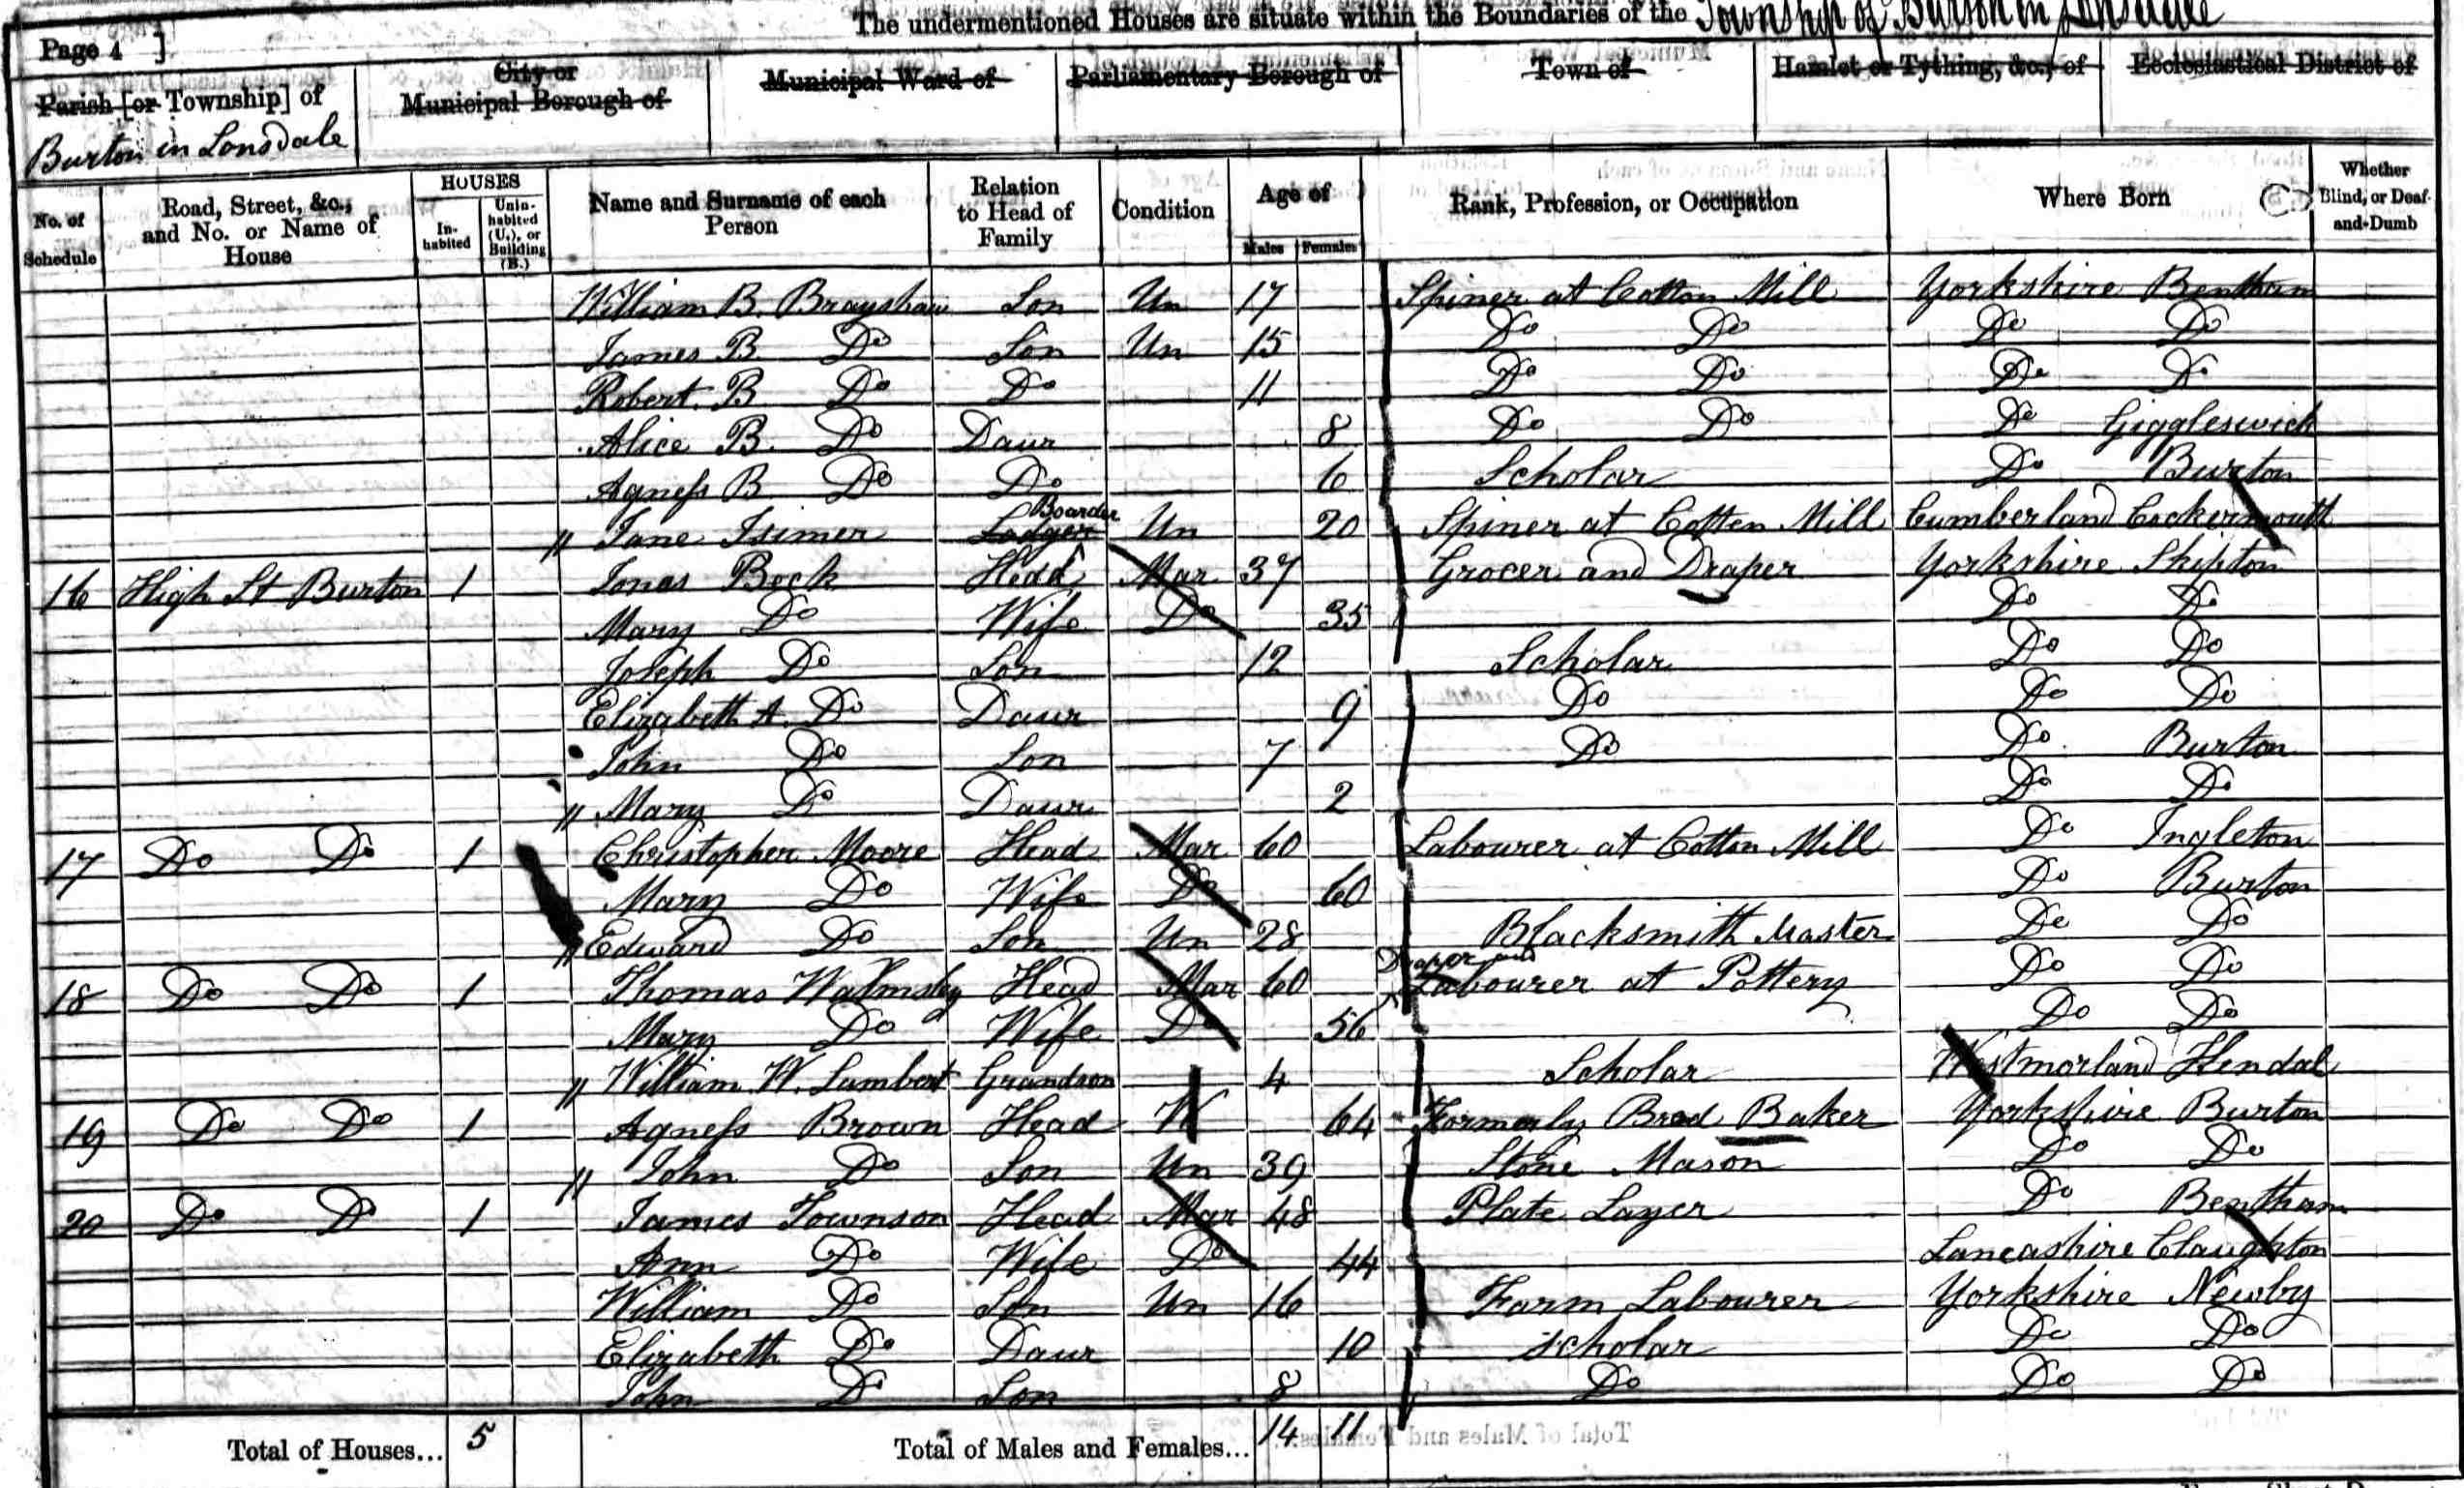 The undermentioned Houses are situate within the Boundaries of the Township of Burton in Lonsdale
Page 4 ]
Parish [or Township] of
Burton in Lonsdale
City or Municipal Borough of
Municipal Ward of
Parliamentary Borough of
Town of
Hamlet or Tything, &c., of
Ecclesiastical District of
No. of Schedule
Road, Street, &c., and No. or Name of House
HOUSES
In-habited
Unin-habited (U.), or Building (B.)
Name and Surname of each Person
Relation to Head of Family
Condition
Age of
Males
Females
Rank, Profession, or Occupation
Where Born
Whether Blind, or Deaf-and-Dumb
William B. Brayshaw Son Un 17 Spiner at Cotton Mill Yorkshire Bentham
James B Do Son Un 15 Do Do Do Do
Robert B Do Do 11 Do Do Do Do
Alice B. Do Daur 8 Do Do Do Giggleswick
Agness B Do Do 6 Scholar Do Burton
" Jane Lodger Boarder Un 20 Spiner at Cotten Mill Cumberland Cockermouth
16 High St Burton 1 Jonas Beck Head Mar 37 Grocer and Draper Yorkshire Skipton
Mary Do Wife Do 35 Do Do
Joseph Do Son 12 Scholar Do Do
Elizabeth A. Do Daur 9 Do Do Do
John Do Son 7 Do Do Burton
" Mary Do Daur 2 Do Do
17 Do Do 1 Christopher Moore Head Mar 60 Labourer at Cotton Mill Do Ingleton
Mary Do Wife Do 60 Do Burton
" Edward Do Son Un 28 Blacksmith Master Do Do
18 Do Do 1 Thomas Walmsley Head Mar 60 Draper and Labourer at Pottery Do Do
Mary Do Wife Do 56 Do Do
" William W. Lambert Grandson 4 Scholar Westmorland Kendal
19 Do Do 1 Agness Brown Head W 64 Formerly Bred Baker Yorkshire Burton
" John Do Son Un 39 Stone Mason Do Do
20 Do Do 1 James Townson Head Mar 48 Plate Layer Do Bentham
Ann Do Wife Do 44 Lancashire Claughton
William Do Son Un 16 Farm Labourer Yorkshire Newby
Elizabeth Do Daur 10 Scholar Do Do
John Do Son 8 Do Do Do
Total of Houses... 5
Total of Males and Females... 14 11